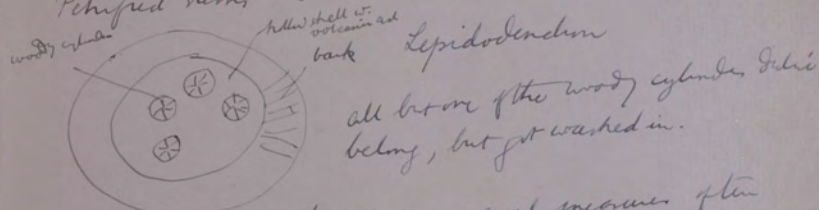 Petrified stems
hollow shell w.
volcanic ash
woody cylinder
bark
Lepidodendron
all but one of the woody cylinders didn't
belong, but got washed in.
measures often